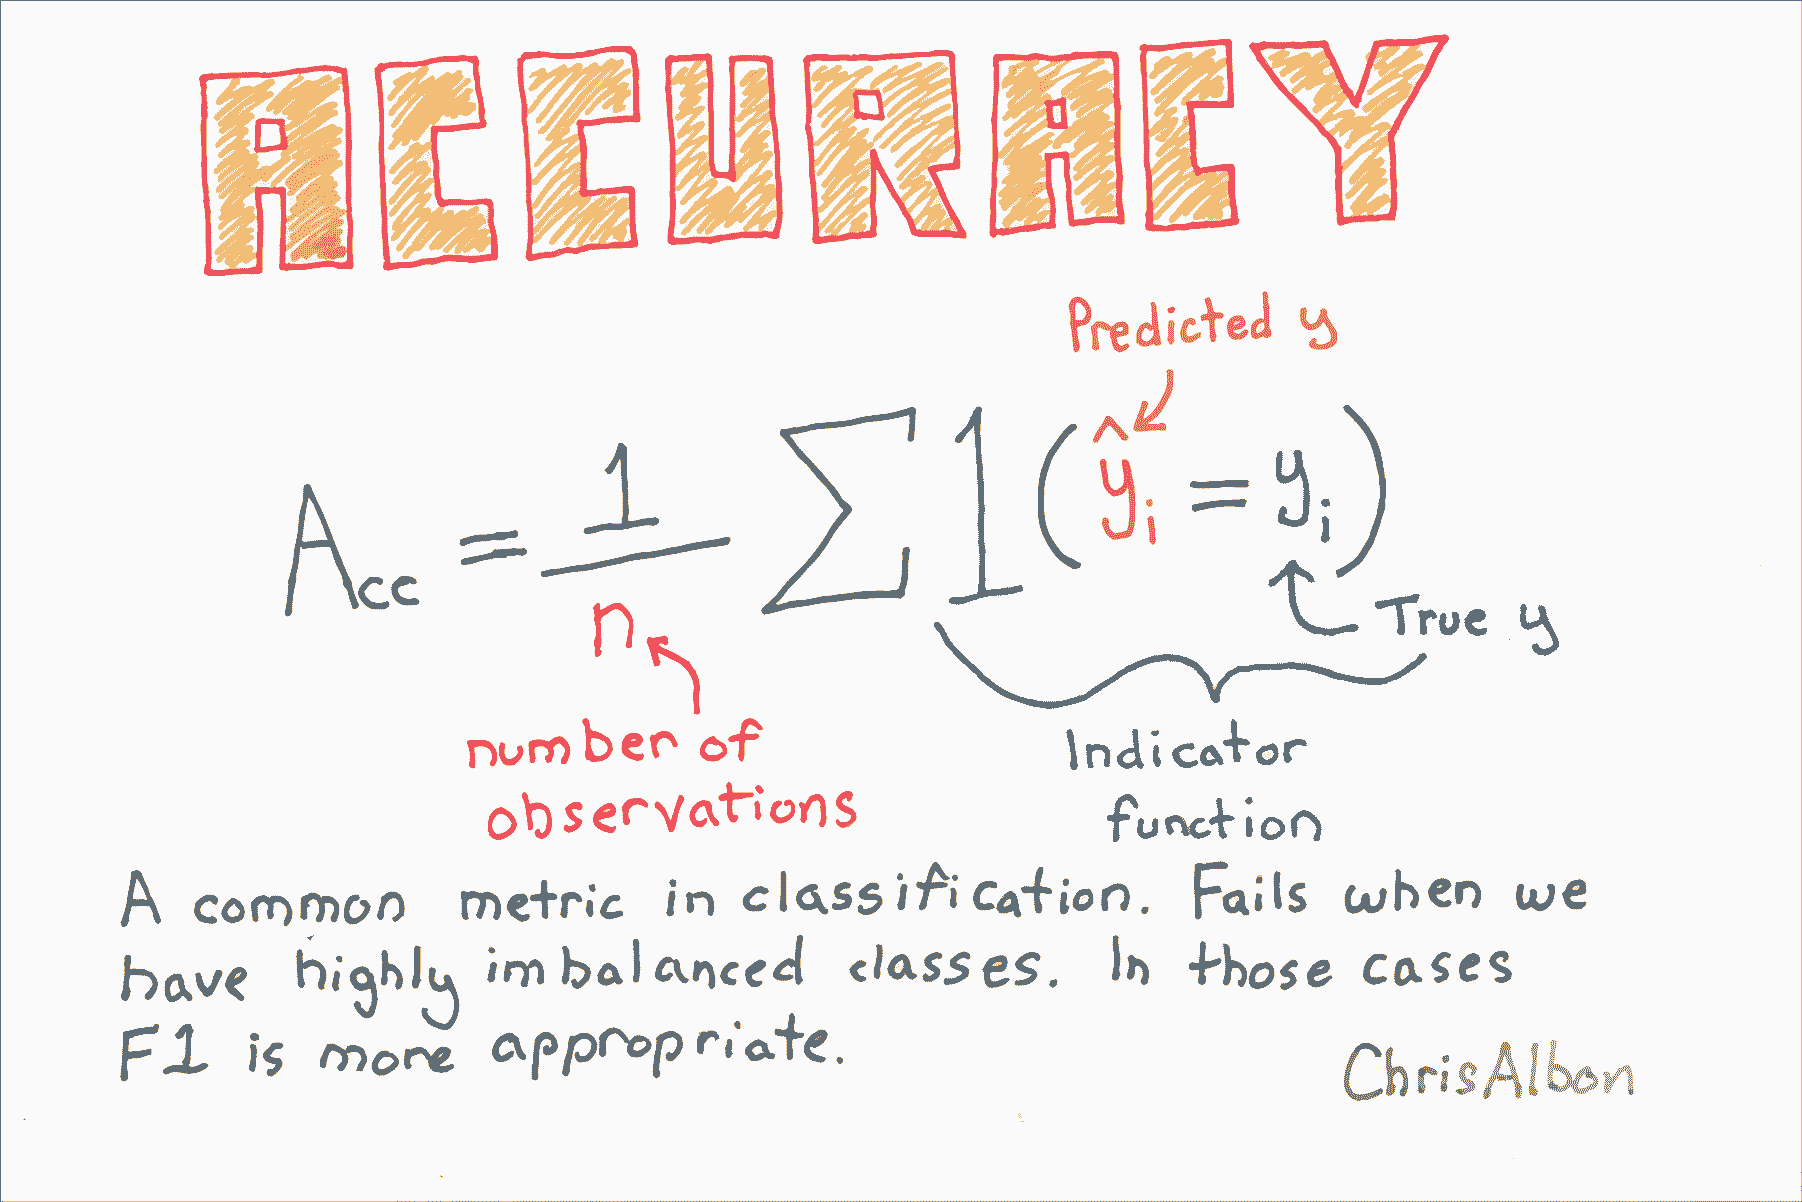 ACCURACY
Predicted y
Acc = 1/n Σ 1(ŷᵢ = yᵢ)
True y
number of
observations
Indicator
function
A common metric in classification. Fails when we
have highly imbalanced classes. In those cases
F1 is more appropriate.
ChrisAlbon